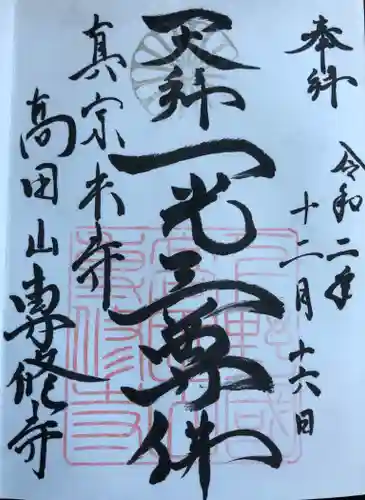 奉拝
令和二年
十二月十六日
天拝一光三尊佛
真宗本寺
高田山専修寺